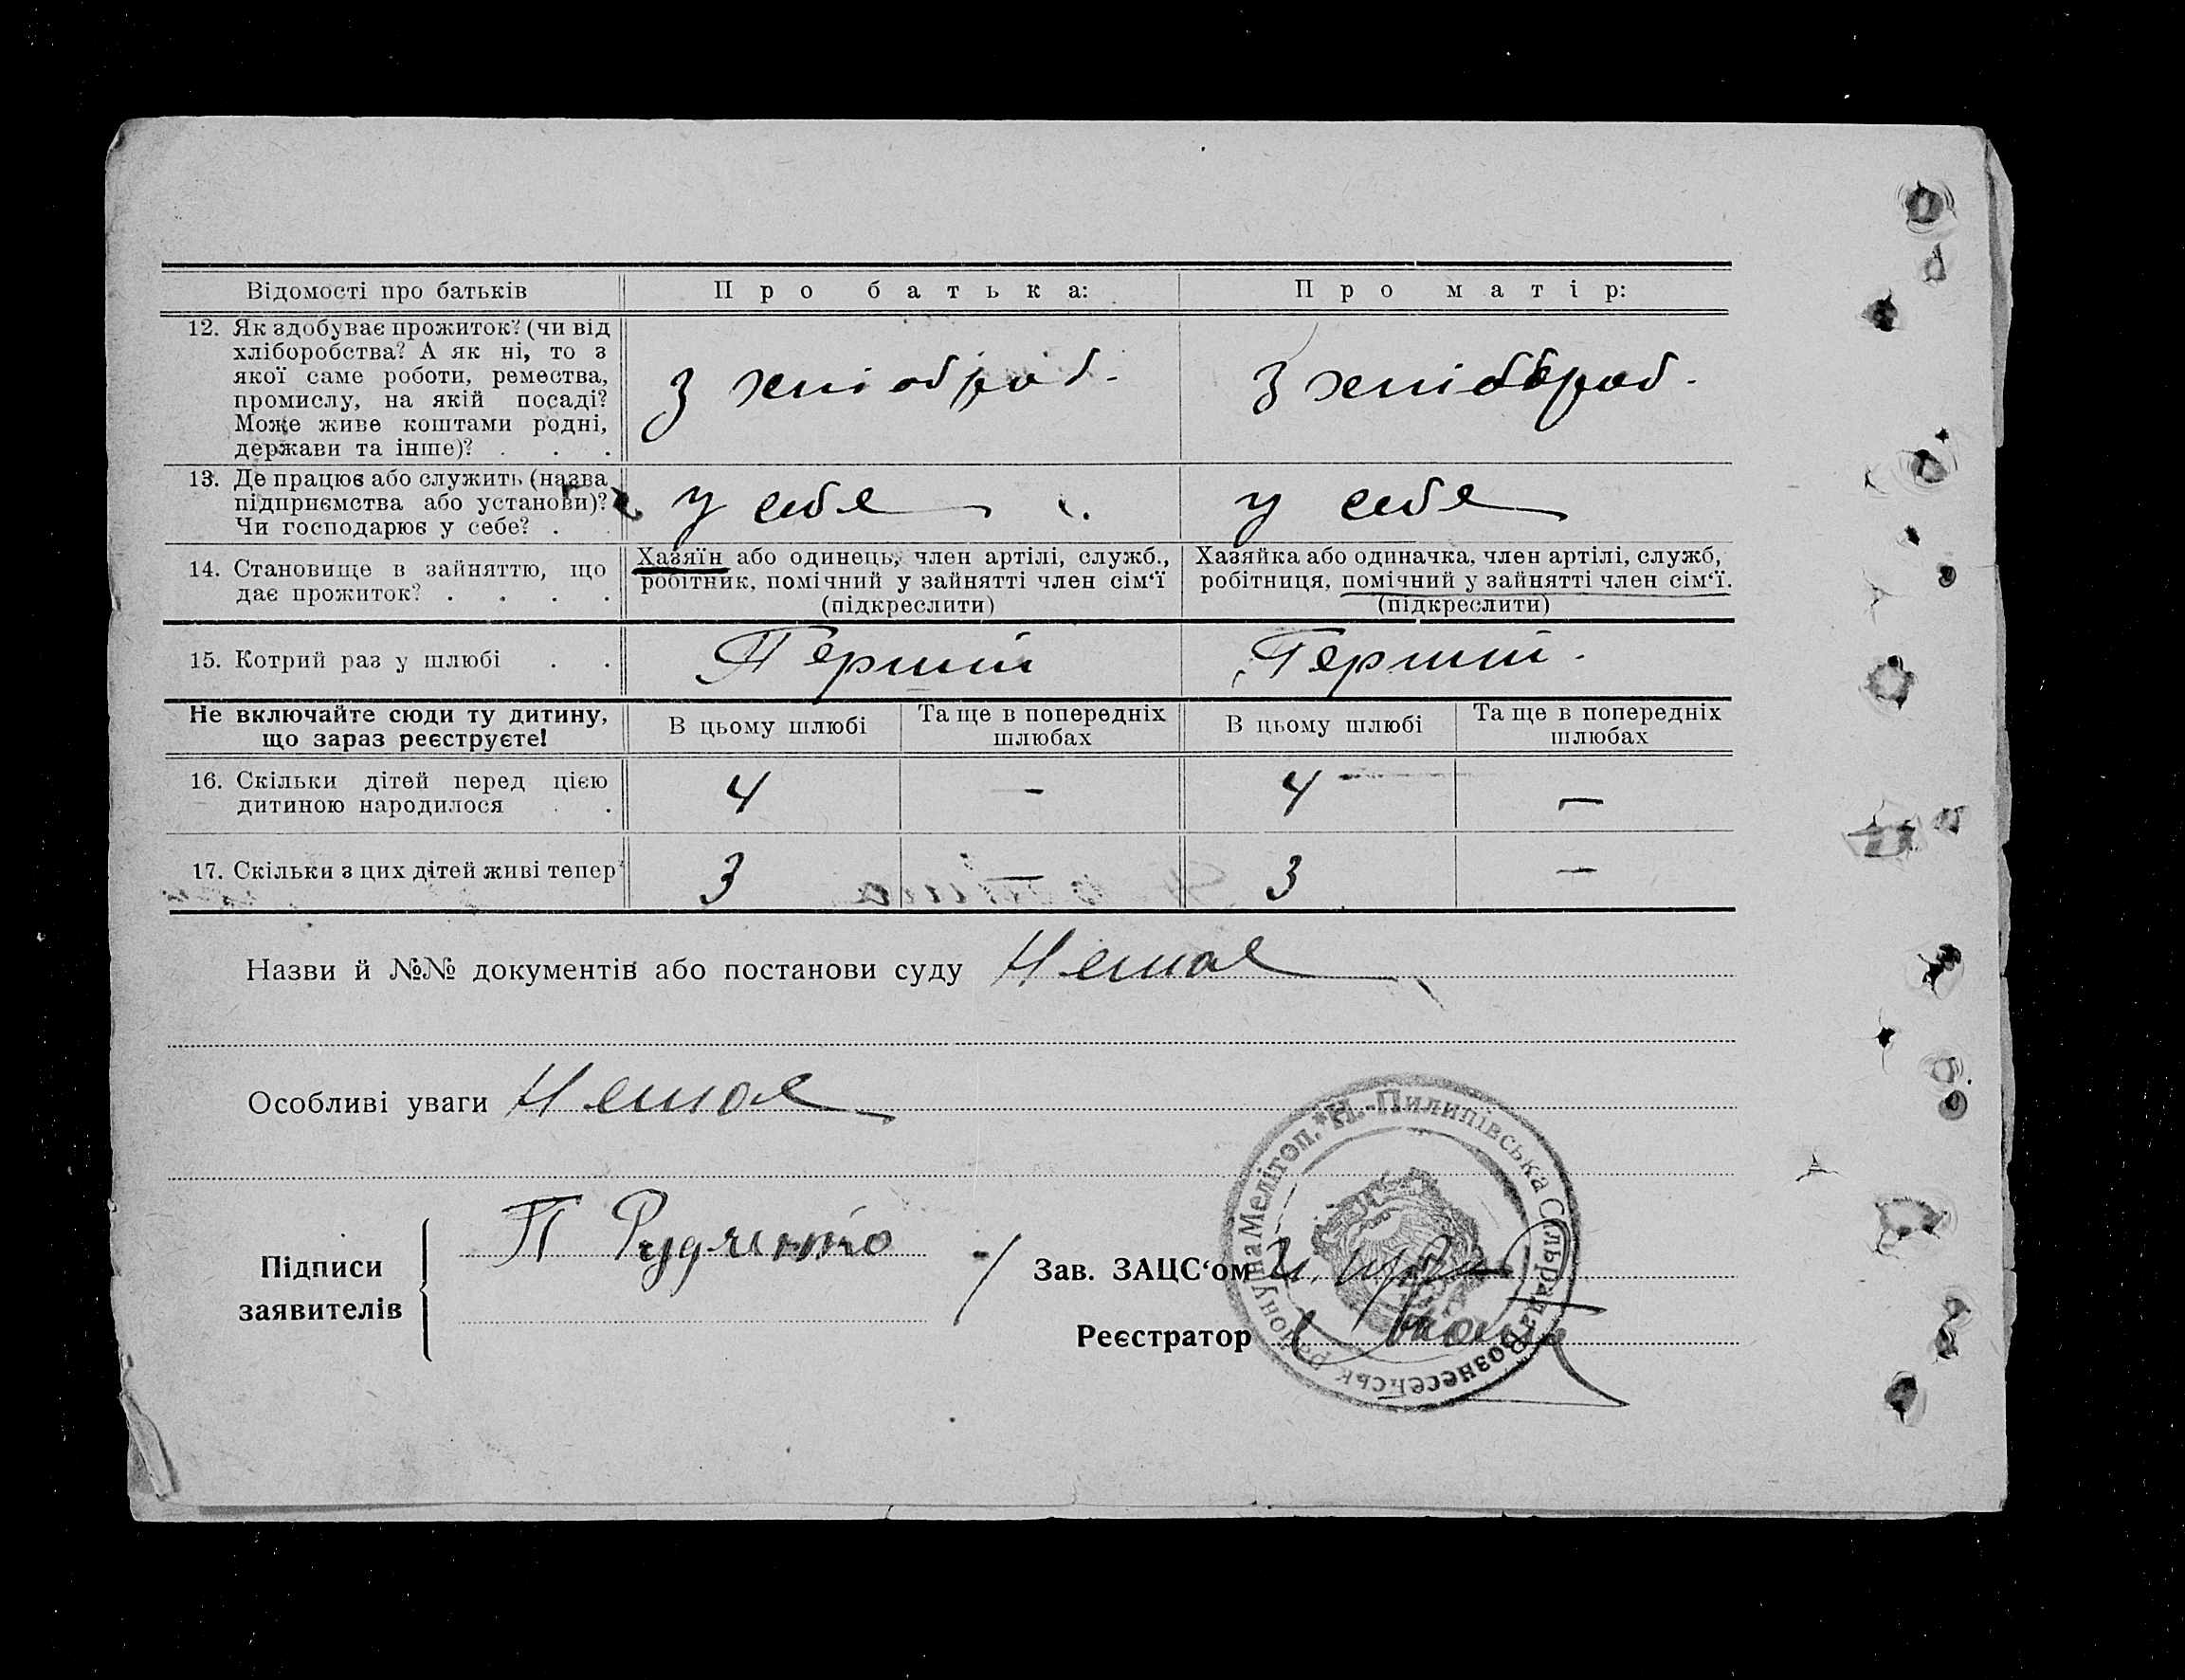 Відомості про батьків
Про батька:
Про матір:
12. Як здобуває прожиток? (чи від
хліборобства? А як ні, то з
якої саме роботи, ремества,
промислу, на якій посаді?
Може живе коштами родні,
держави та інше)? . . .
З хліоброб.
З хліоброб.
13. Де працює або служить (назва
підприємства або установи)?
Чи господарює у себе? . .
у себе
у себе
14. Становище в зайняттю, що
дає прожиток? . . . .
Хазяїн або одинець, член артілі, служб.,
робітник, помічний у зайнятті член сім‘ї
(підкреслити)
Хазяйка або одиначка, член артілі, служб,
робітниця, помічний у зайнятті член сім‘ї.
(підкреслити)
15. Котрий раз у шлюбі . .
Перший
Перший.
Не включайте сюди ту дитину,
що зараз реєструєте!
В цьому шлюбі
Та ще в попередніх
шлюбах
В цьому шлюбі
Та ще в попередніх
шлюбах
16. Скільки дітей перед цією
дитиною народилося . .
4 — 4 —
17. Скільки з цих дітей живі тепер?
3 — 3 —
Назви й №№ документів або постанови суду Немає
Особливі уваги Немає
Підписи
заявителів
П Рудченко
Зав. ЗАЦС‘ом
Реєстратор
Н.-Пилипівська Сільрада Вознесенськ району на Мелітоп.